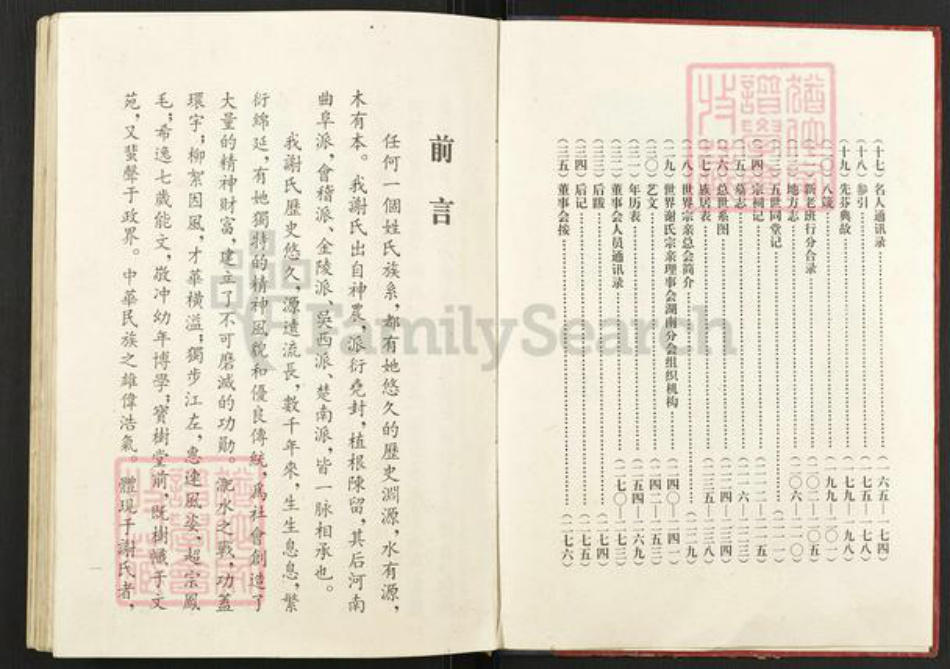 (十七) 名人通讯录……(一六五—一七四)
(十八) 参引……(一七五—一七八)
(十九) 先芬典故……(一七九—一九八)
八箴……(一九九—二〇一)
新老班行分合录……(二〇二—二〇五)
地方志……(二〇六—二一〇)
五世同堂记……(二一一)
宗祠记……(二一二—二一五)
墓志……(二一六—二二三)
总世系图……(二二四—二三四)
族居表……(二三五—二三八)
世界宗亲总会简介……(二三九)
世界谢氏宗亲理事会湖南分会组织机构……(二四〇—二四一)
(三〇) 艺文……(二四二—二五三)
(三一) 年历表……(二五四—二六九)
(三二) 董事会人员通讯录……(二七〇—二七三)
(三三) 后跋……(二七四)
(三四) 后记……(二七五)
(三五) 董事会挨……(二七六)
前言
任何一個姓氏族系,都有她悠久的歷史淵源,水有源,
木有本。我謝氏出自神農、派衍堯封,植根陳留,其后河南
曲阜派、會稽派、金陵派、吳西派、楚南派,皆一脉相承也。
我謝氏歷史悠久,源遠流長,數千年來,生生息息,繁
衍綿延,有她獨特的精神風貌和優良傳統,爲社會創造了
大量的精神財富,建立了不可磨滅的功勛。淝水之戰,功蓋
環宇;柳絮因風,才華橫溢;獨步江左,惠連風姿,超宗鳳
毛;希逸七歲能文,敬冲幼年博學;寶樹堂前,既樹幟于文
苑,又蜚聲于政界。中華民族之雄偉浩氣。體現于謝氏者,
一
FamilySearch